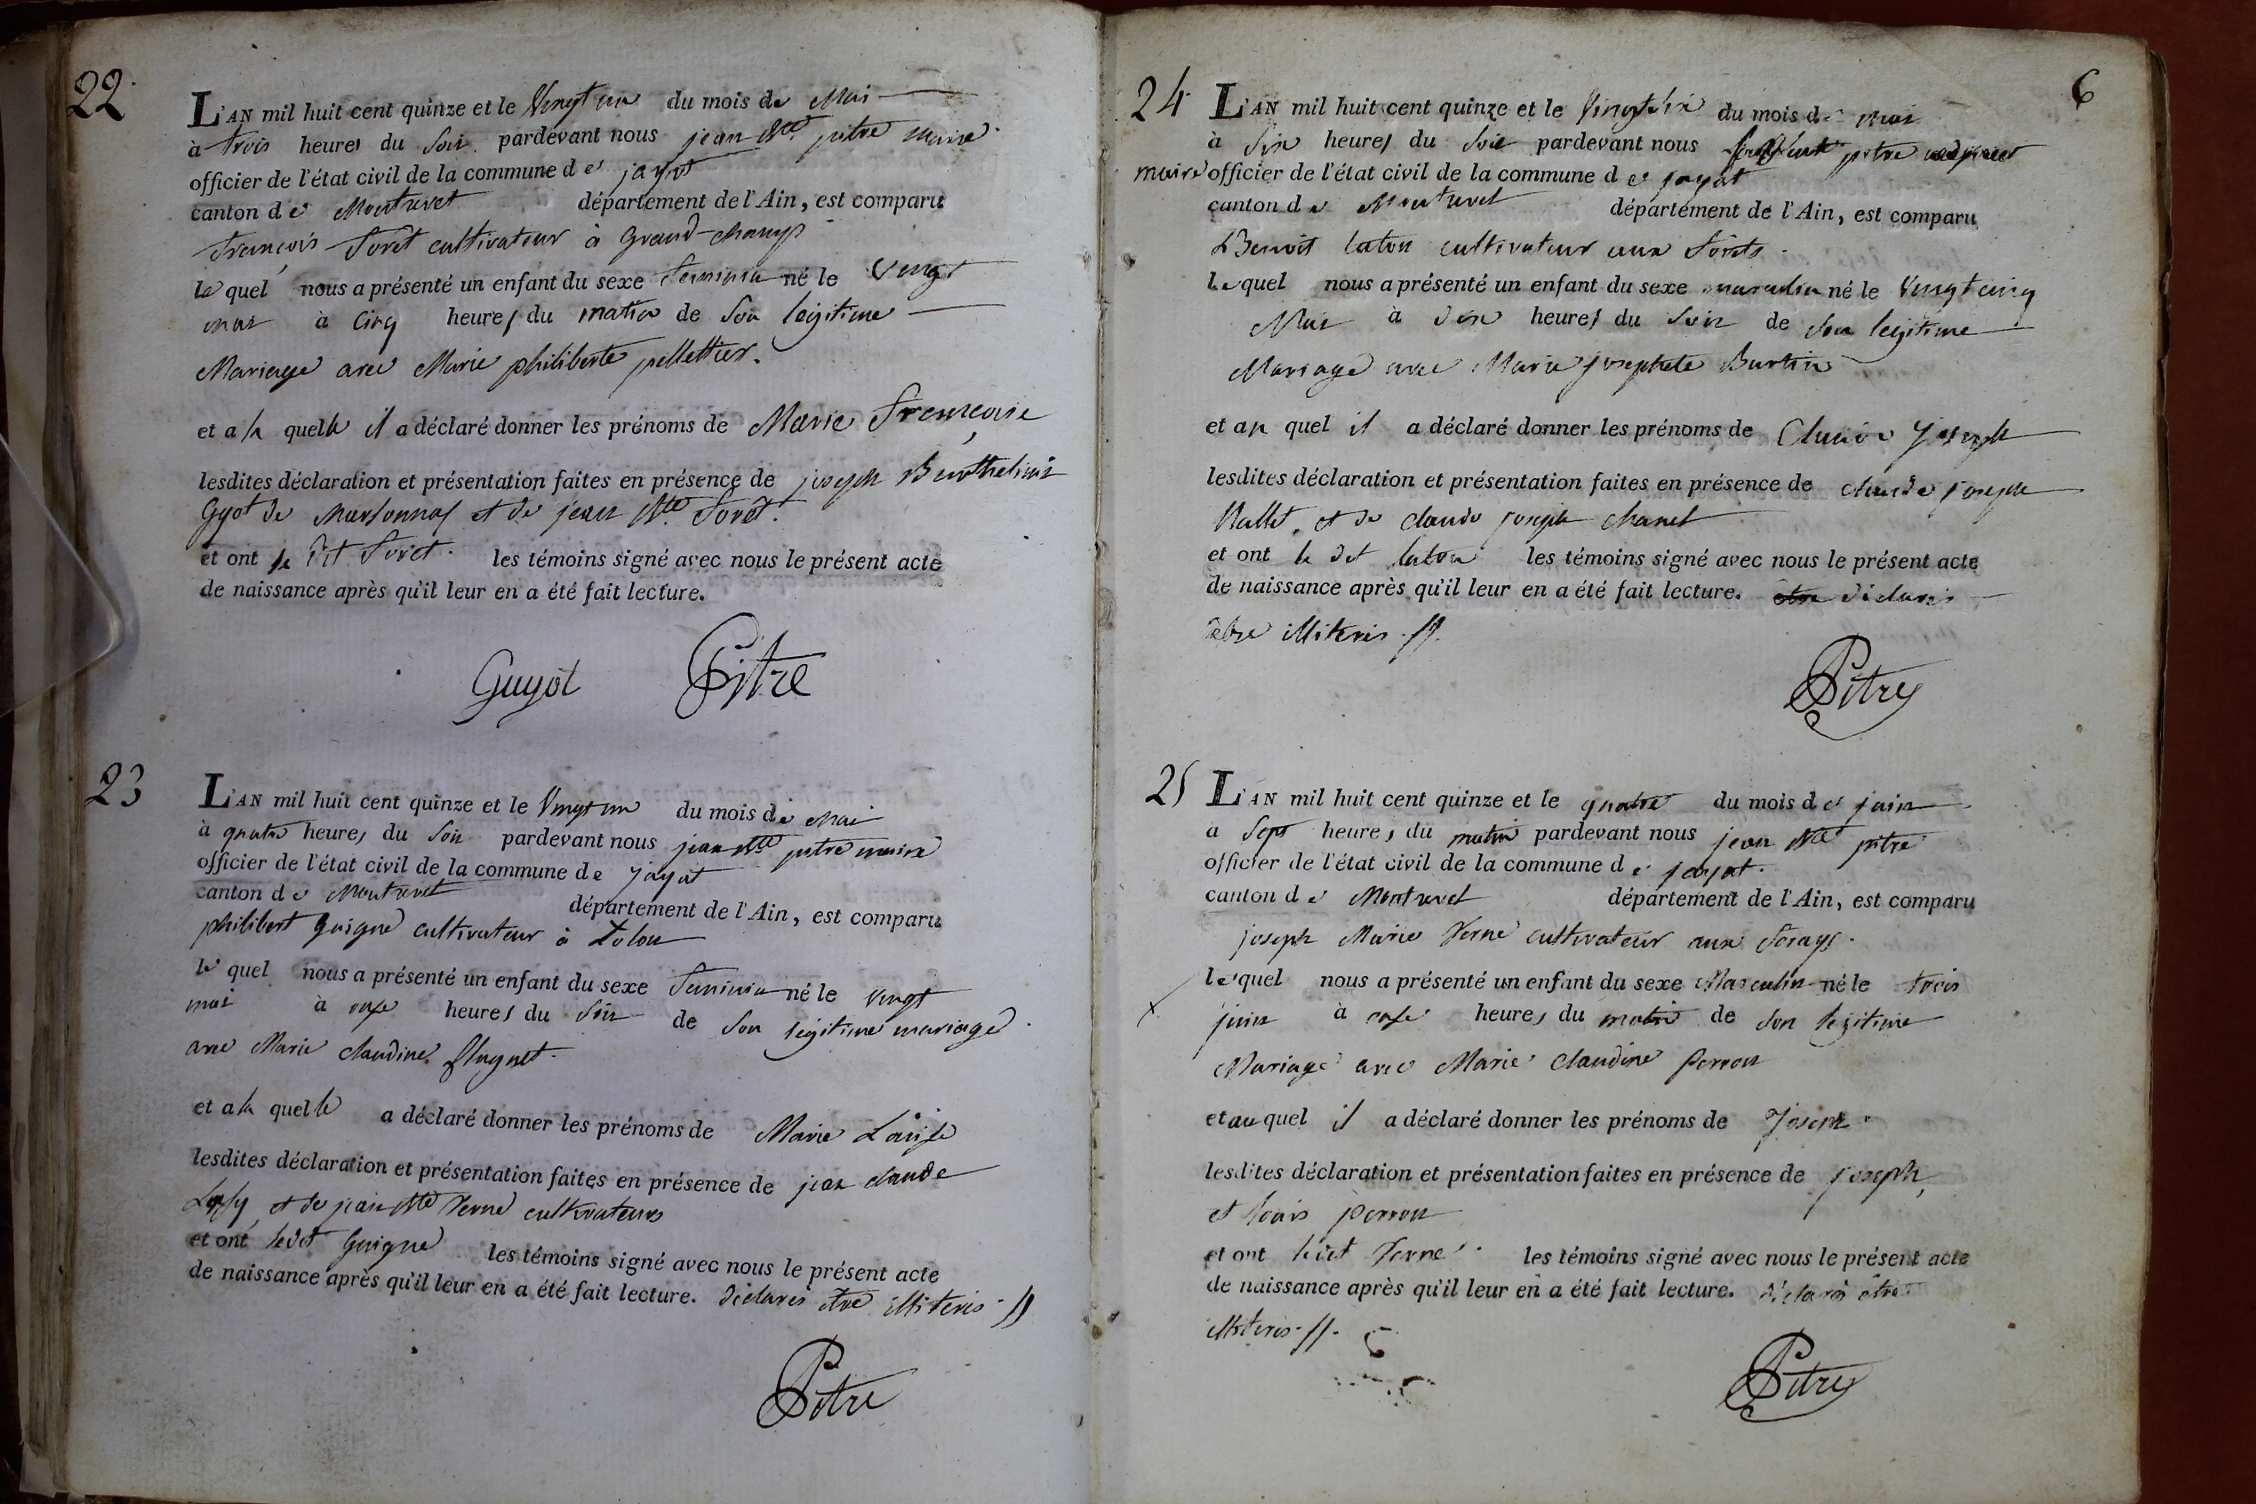 22
L'AN mil huit cent quinze et le Vingt un du mois de Mai
à trois heures du Soir pardevant nous jean Bte pitre maire
officier de l'état civil de la commune de jayat
canton de Montrevet département de l'Ain, est comparu
françois Foret cultivateur à Grand-champ
le quel nous a présenté un enfant du sexe feminin né le Vingt
mai à cinq heures du matin de Son legitime
Mariage avec Marie philiberte pellettier.
et a la quelle il a déclaré donner les prénoms de Marie francoise
lesdites déclaration et présentation faites en présence de joseph
Gyot de Marsonnas et de jean Bte Foret.
et ont le dit Foret. les témoins signé avec nous le présent acte
de naissance après qu'il leur en a été fait lecture.
Guyot Pitre
23
L'AN mil huit cent quinze et le Vingt un du mois de Mai
à quatre heures du Soir pardevant nous jean Bte pitre maire
officier de l'état civil de la commune de jayat
canton de Montrevet département de l'Ain, est comparu
philibert Guigne cultivateur à
le quel nous a présenté un enfant du sexe feminin né le Vingt
mai à onze heures du Soir de Son légitime mariage
avec Marie claudine
et a la quelle a déclaré donner les prénoms de Marie Louise
lesdites déclaration et présentation faites en présence de jean claude
et de jean Bte Verne cultivateurs
et ont ledit Guigne les témoins signé avec nous le présent acte
de naissance après qu'il leur en a été fait lecture. déclarés être illiteris
Pitre
6
24
L'AN mil huit cent quinze et le Vingt six du mois de mai
à Six heures du Soir pardevant nous pitre
maire officier de l'état civil de la commune de jayat
canton de Montrevet département de l'Ain, est comparu
Benoit laton cultivateur aux forets
le quel nous a présenté un enfant du sexe masculin né le Vingt cinq
Mai à dix heures du Soir de Son legitime
Mariage avec Marie josephete Burtin
et au quel il a déclaré donner les prénoms de Claude Joseph
lesdites déclaration et présentation faites en présence de claude joseph
et de claude joseph chanel
et ont le dit laton les témoins signé avec nous le présent acte
de naissance après qu'il leur en a été fait lecture. être déclarés
être illiteris
Pitre
25
L'AN mil huit cent quinze et le quatre du mois de juin
à Sept heures du matin pardevant nous jean Bte pitre
officier de l'état civil de la commune de jayat.
canton de Montrevet département de l'Ain, est comparu
joseph Marie Verne cultivateur aux
le quel nous a présenté un enfant du sexe Masculin né le trois
juin à onze heures du matin de Son legitime
Mariage avec Marie claudine perron
et au quel il a déclaré donner les prénoms de Joseph
lesdites déclaration et présentation faites en présence de joseph,
et louis perron
et ont ledit Verne les témoins signé avec nous le présent acte
de naissance après qu'il leur en a été fait lecture. déclarés être
illiteris
Pitre